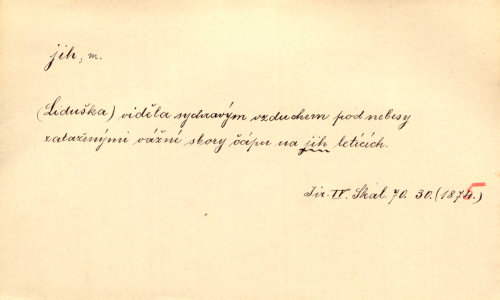 jih, m.
(Liduška) viděla sychravým vzduchem pod nebesy
zataženými vážné sbory čápů na jih letících.
Jir. IV. Skal. 70. 30. (1875.)